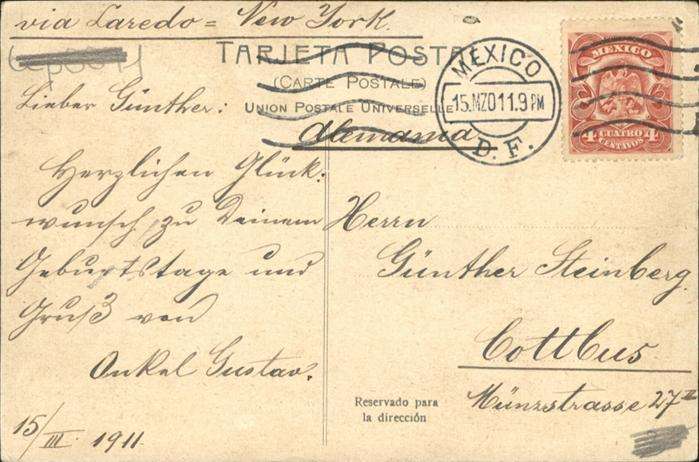 via Laredo = New York.
TARJETA POSTAL
(CARTE POSTALE)
UNION POSTALE UNIVERSELLE
Alemania
MEXICO
15.MZO11.9PM
D. F.
MEXICO
4 CUATRO 4
CENTAVOS
Lieber Günther:
Herzlichen Glück:
wunsch zu Deinem
Geburtstage und
Gruß von
Onkel Gustav.
15/III. 1911.
Herrn
Günther Steinberg.
Cottbus
Münzstrasse 27 II
Reservado para
la dirección